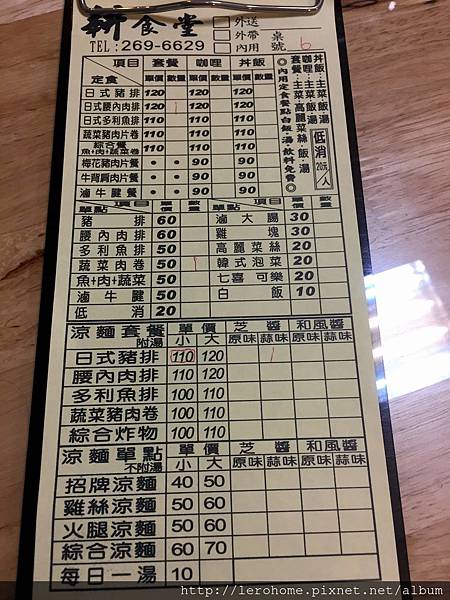 新食堂
TEL:269-6629
外送
外帶
內用
桌號 6
項目 套餐 咖哩 丼飯
定食 單價 數量 單價 數量 單價 數量
日式豬排 120 120 120
日式腰內肉排 120 1 120 120
日式多利魚排 110 110 110
蔬菜豬肉片卷 110 110 110
綜合餐 魚+肉+蔬菜 110 110 110
梅花豬肉片餐 • • 90 90
牛背肩肉片餐 • • 90 90
滷牛腱餐 • • 90 90
丼飯:主菜、飯、湯
咖哩:主菜、飯、湯
套餐:主菜、高麗菜絲、飯、湯
◎內用定食餐點白飯、湯、飲料免費◎
低消 20元/人
項目 單點 單價 數量 項目 單點 單價 數量
豬排 60 滷大腸 30
腰內肉排 60 雞塊 30
多利魚排 50 高麗菜絲 20
蔬菜肉卷 50 1 韓式泡菜 20
魚+肉+蔬菜 50 七喜 可樂 20
滷牛腱 50 白飯 10
低消 20
涼麵套餐 附湯 單價 小 大 芝醬 原味 蒜味 和風醬 原味 蒜味
日式豬排 110 120 1
腰內肉排 110 120
多利魚排 100 110
蔬菜豬肉卷 100 110
綜合炸物 100 110
涼麵單點 不附湯 單價 小 大 芝醬 原味 蒜味 和風醬 原味 蒜味
招牌涼麵 40 50
雞絲涼麵 50 60
火腿涼麵 50 60
綜合涼麵 60 70
每日一湯 10
http://lerohome.pixnet.net/album